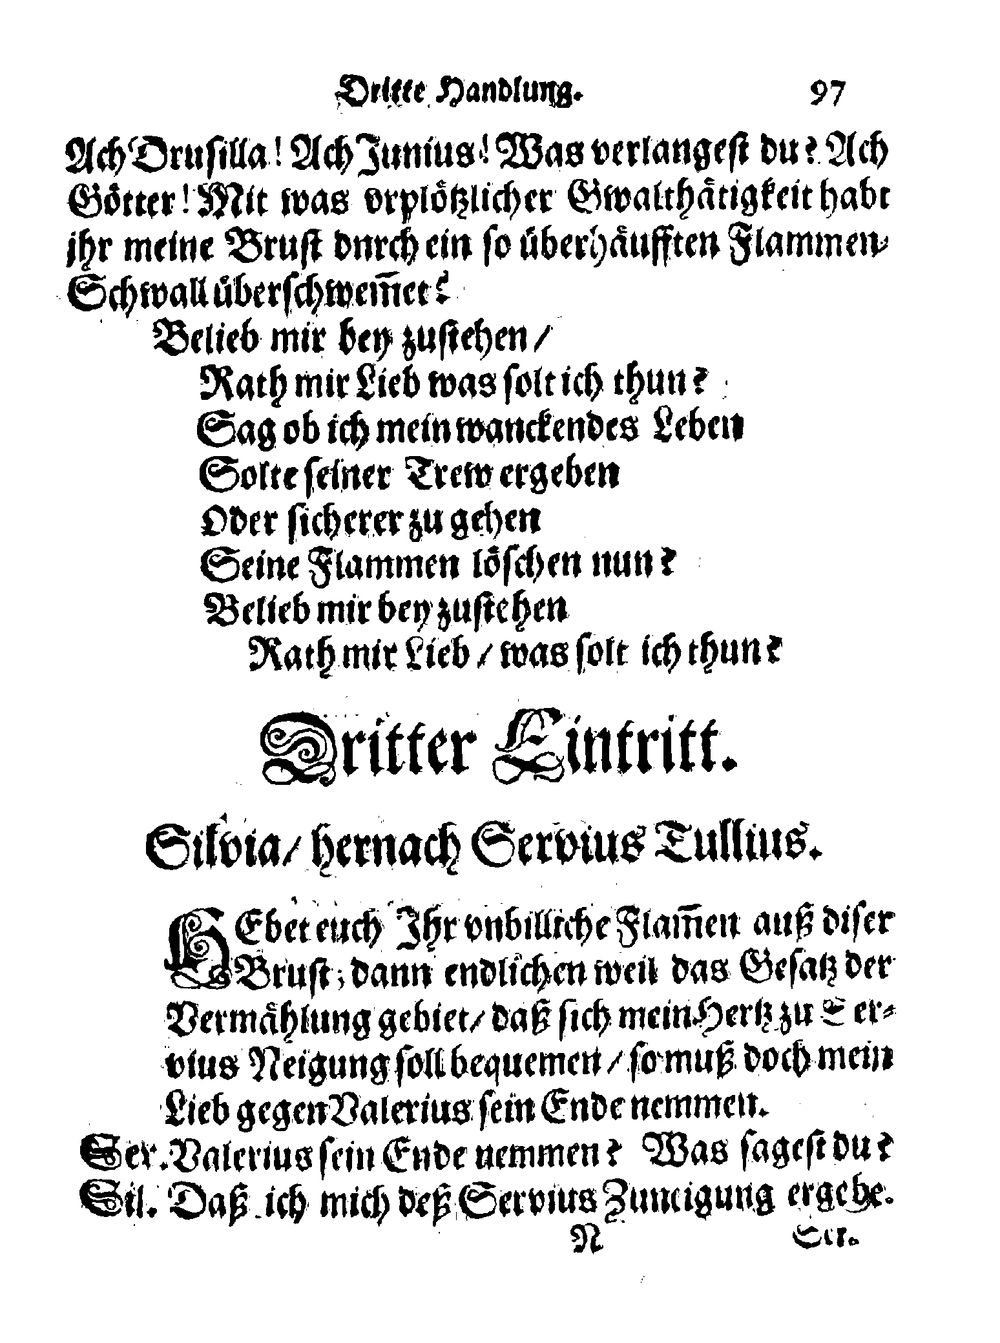 Dritte Handlung. 97
Ach Drusilla! Ach Junius! Was verlangest du? Ach
Götter! Mit was vrplötzlicher Gwalthätigkeit habt
jhr meine Brust dnrch ein so überhäufften Flammen-
Schwall überschwem̃et?
Belieb mir bey zustehen /
Rath mir Lieb was solt ich thun?
Sag ob ich mein wanckendes Leben
Solte seiner Trew ergeben
Oder sicherer zu gehen
Seine Flammen löschen nun?
Belieb mir bey zustehen
Rath mir Lieb / was solt ich thun?
Dritter Eintritt.
Silvia / hernach Servius Tullius.
HEbet euch Ihr vnbilliche Flam̃en auß diser
Brust; dann endlichen weil das Gesatz der
Vermählung gebiet / daß sich mein Hertz zu Ser-
vius Neigung soll bequemen / so muß doch mein
Lieb gegen Valerius sein Ende nemmen.
Ser. Valerius sein Ende nemmen? Was sagest du?
Sil. Daß ich mich deß Servius Zuneigung ergebe.
N Ser.